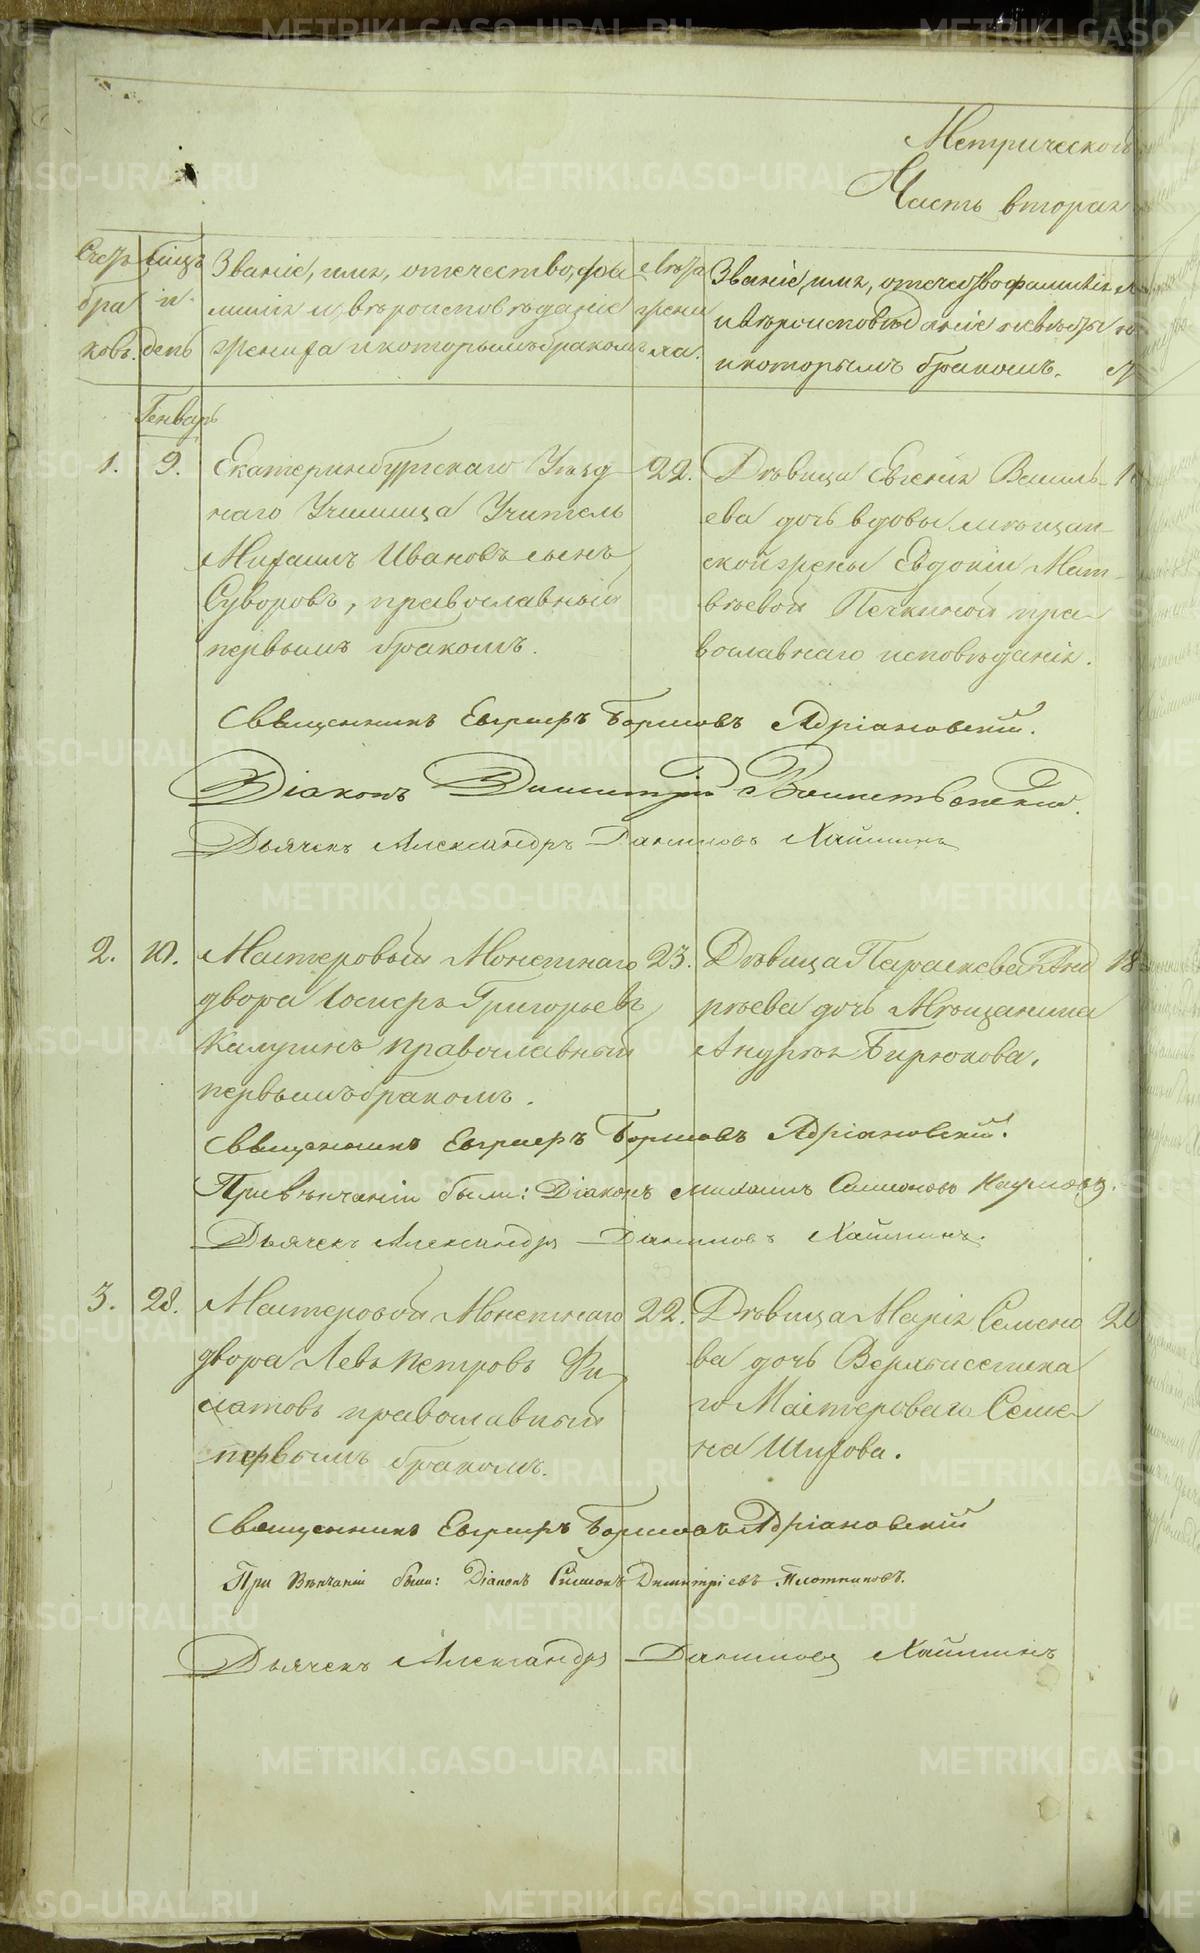 Метрической
Часть вторая
Счетъ бра ковъ.
мѣсяцъ и день
Званіе, имя, отечество, фа
милія и вѣроисповѣданіе
жениха и которымъ бракомъ
лѣта жени ха.
Званіе, имя, отечество фамилія
и вѣроисповѣданіе невѣсты
и которымъ бракомъ.
Генварь
1. 9.
Екатеринбургскаго Уѣзд
наго Училища Учитель
Михаилъ Ивановъ сынъ
Суворовъ, православный
первымъ бракомъ.
22.
Дѣвица Евгенія Василь-
ева дочь вдовы мѣщан-
ской жены Евдокіи Мат-
вѣевой Печкиной пра-
вославнаго исповѣданія.
Священникъ Евграфъ Борисовъ Адріановскій.
Діаконъ Димитрій
Дьячекъ Александръ Даниловъ Хаймин
2. 10.
Мастеровый Монетнаго
двора Іосифъ Григорьевъ
Калугинъ православный
первымъ бракомъ.
23.
Дѣвица Параскева Анд
рѣева дочь Мѣщанина
Андрѣя Бирюкова.
18
Священникъ Евграфъ Борисовъ Адріановскій.
При вѣнчаніи были: Діаконъ Михаилъ Симеоновъ Наумовъ.
Дьячекъ Александръ Даниловъ Хайминъ.
3. 28.
Мастеровой Монетнаго
двора Левъ Петровъ Фи
латовъ православный
первымъ бракомъ.
22.
Дѣвица Марія Семено
ва дочь Верхъисетска
го Мастероваго Семе-
на Шихова.
20
Священникъ Евграфъ Борисовъ Адріановскій
При Вѣнчаніи были: Діаконъ Симеонъ Димитріевъ Плотниковъ.
Дьячекъ Александръ Даниловъ Хайминъ
METRIKI.GASO-URAL.RU